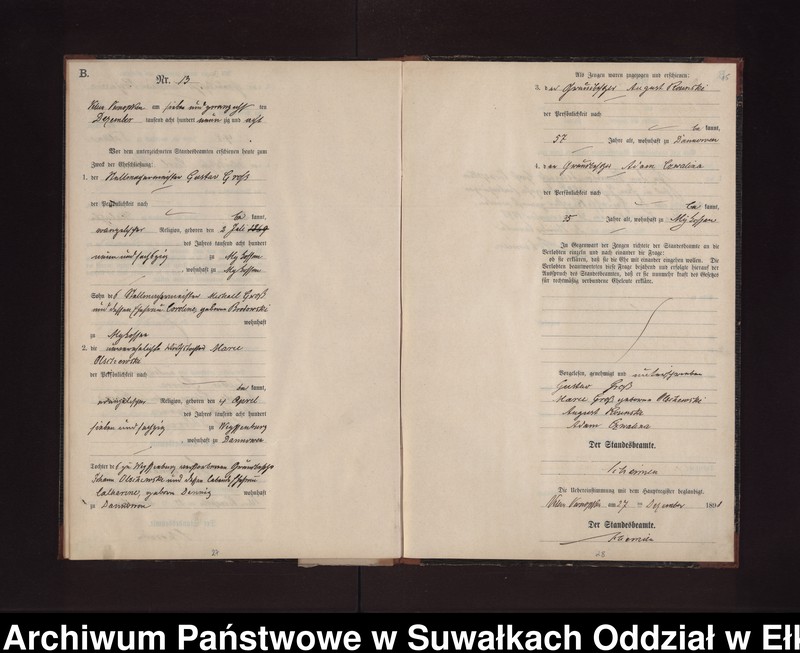 B.
Nr. 13
am sieben und zwanzigsten ten
Dezember tausend acht hundert neun zig und acht
Vor dem unterzeichneten Standesbeamten erschienen heute zum
Zweck der Eheschließung:
1. der Gustav Groß
der Persönlichkeit nach
be kannt,
evangelischer Religion, geboren den 2 Juli
des Jahres tausend acht hundert
neun und sechzig zu Mykossen
, wohnhaft zu Mykossen
Sohn des Michael Groß
und dessen Ehefrau Caroline, geborene
wohnhaft
zu Mykossen
2. die unverehelichte Marie
Olschewski
der Persönlichkeit nach
be kannt,
evangelischer Religion, geboren den April
des Jahres tausend acht hundert
sieben und sechzig zu
, wohnhaft zu Dannowen
Tochter des zu verstorbenen Grundbesitzer
Johann Olschewski und dessen Ehefrau
Catharine, geborne wohnhaft
zu Dannowen
27
Als Zeugen waren zugezogen und erschienen:
3. der Grundbesitzer August
der Persönlichkeit nach
be kannt,
57 Jahre alt, wohnhaft zu Dannowen
4. der Grundbesitzer Adam
der Persönlichkeit nach
be kannt,
35 Jahre alt, wohnhaft zu Mykossen
In Gegenwart der Zeugen richtete der Standesbeamte an die
Verlobten einzeln und nach einander die Frage:
ob sie erklären, daß sie die Ehe mit einander eingehen wollen. Die
Verlobten beantworteten diese Frage bejahend und erfolgte hierauf der
Ausspruch des Standesbeamten, daß er sie nunmehr kraft des Gesetzes
für rechtmäßig verbundene Eheleute erkläre.
Vorgelesen, genehmigt und unterschrieben
Gustav Groß
Marie Groß geborene Olschewski
August
Adam
Der Standesbeamte.
Die Uebereinstimmung mit dem Hauptregister beglaubigt.
am 27 ten Dezember 1898
Der Standesbeamte.
28
Archiwum Państwowe w Suwałkach Oddział w Ełk